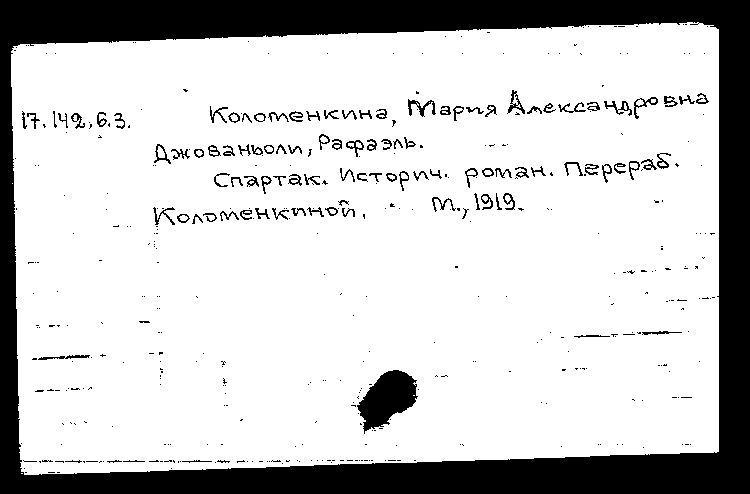 17.142.6.3. Коломенкина, Мария Александровна
Джованьоли, Рафаэль.
Спартак. Историч. роман. Перераб.
Коломенкиной. М., 1919.